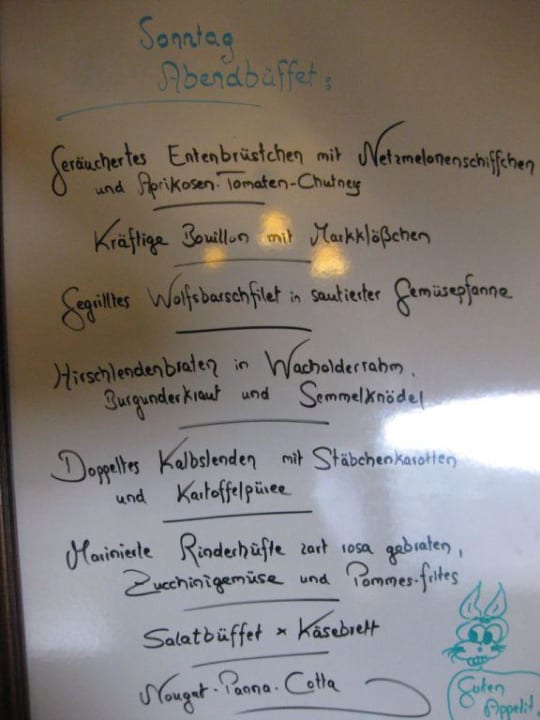 Sonntag
Abendbüffet:
Geräuchertes Entenbrüstchen mit Netzmelonenschiffchen
und Aprikosen-Tomaten-Chutney
Kräftige Bouillon mit Markklößchen
Gegrilltes Wolfsbarschfilet in sautierter Gemüsepfanne
Hirschlendenbraten in Wacholderrahm,
Burgunderkraut und Semmelknödel
Doppeltes Kalbslenden mit Stäbchenkarotten
und Kartoffelpüree
Marinierte Rinderhüfte zart rosa gebraten,
Zucchinigemüse und Pommes-frites
Salatbüffet x Käsebrett
Nougat-Panna-Cotta
Guten
Appetit!